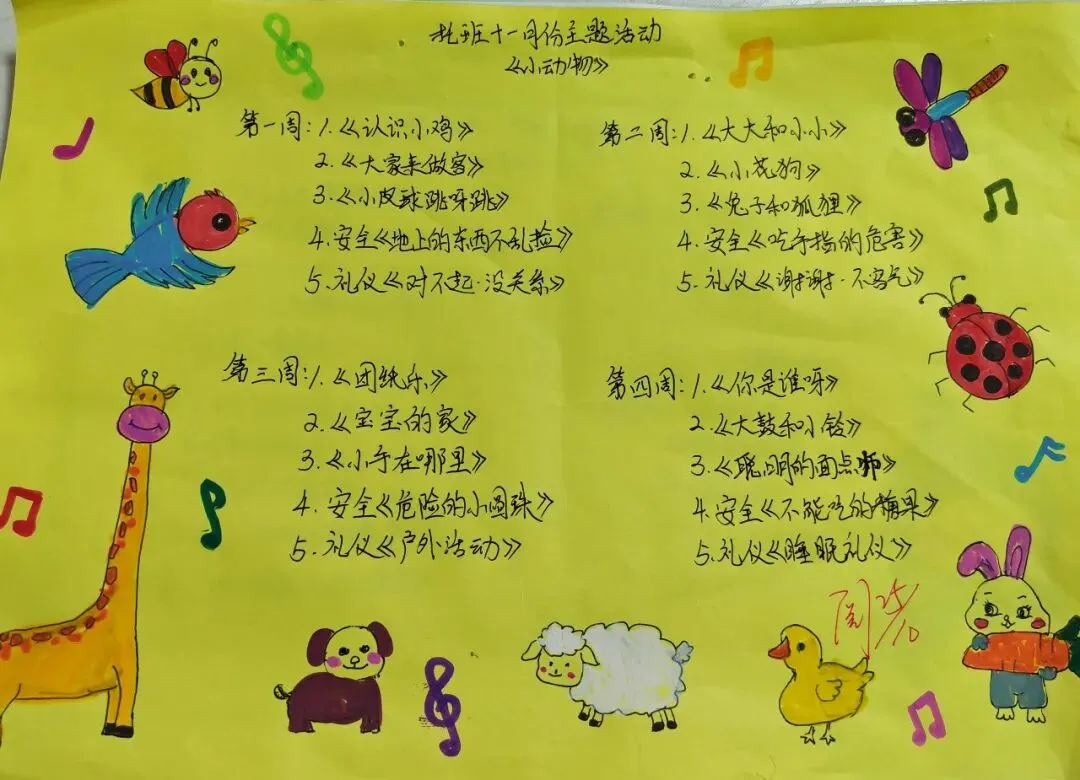 托班十一月份主题活动
《小动物》
第一周:1.《认识小鸡》
2.《大家来做客》
3.《小皮球跳呀跳》
4.安全《地上的东西不乱捡》
5.礼仪《对不起·没关系》
第二周:1.《大大和小小》
2.《小花狗》
3.《兔子和狐狸》
4.安全《吃手指的危害》
5.礼仪《谢谢·不客气》
第三周:1.《团纸乐》
2.《宝宝的家》
3.《小手在哪里》
4.安全《危险的小圆珠》
5.礼仪《户外活动》
第四周:1.《你是谁呀》
2.《大鼓和小铃》
3.《聪明的面点师》
4.安全《不能吃的糖果》
5.礼仪《睡眠礼仪》